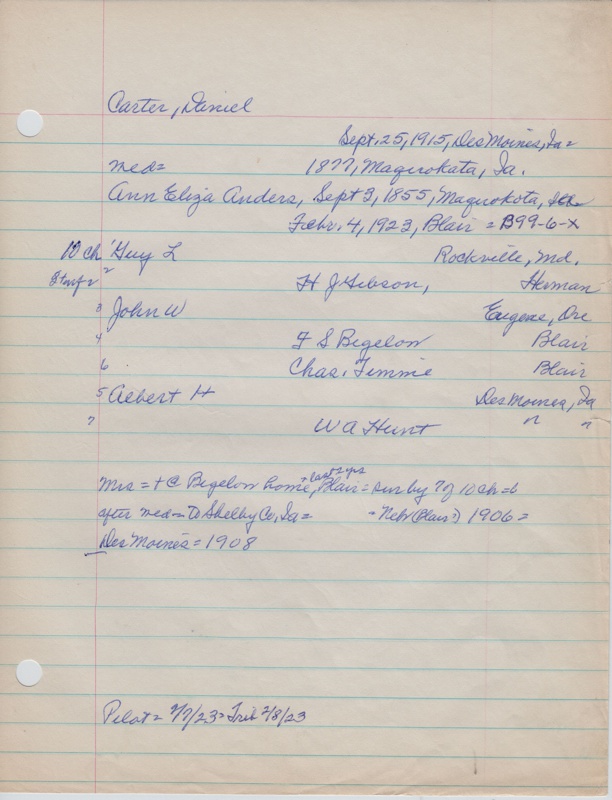 Carter, Daniel
Sept. 25, 1915, Des Moines, Ia =
med = 1877, Maquokata, Ia.
Ann Eliza Anders, Sept 3, 1855, Maquokota,
Febr. 4, 1923, Blair = B99-6-X
10 ch 1 Guy L Rockville, Md.
2 H J Gibson, Herman
3 John W Eugene, Ore
4 F S Bigelow Blair
6 Chas. Timmie Blair
5 Albert H Des Moines, Ia
7 W A Hunt " "
Mrs = + C Bigelow home, Blair = last 3 yrs = sur by 7 of 10 ch = b
after med = to Shelby Co, Ia = - Nebr (Blair?) 1906 =
Des Moines = 1908
Pilot = 2/7/23 = Trib 2/8/23